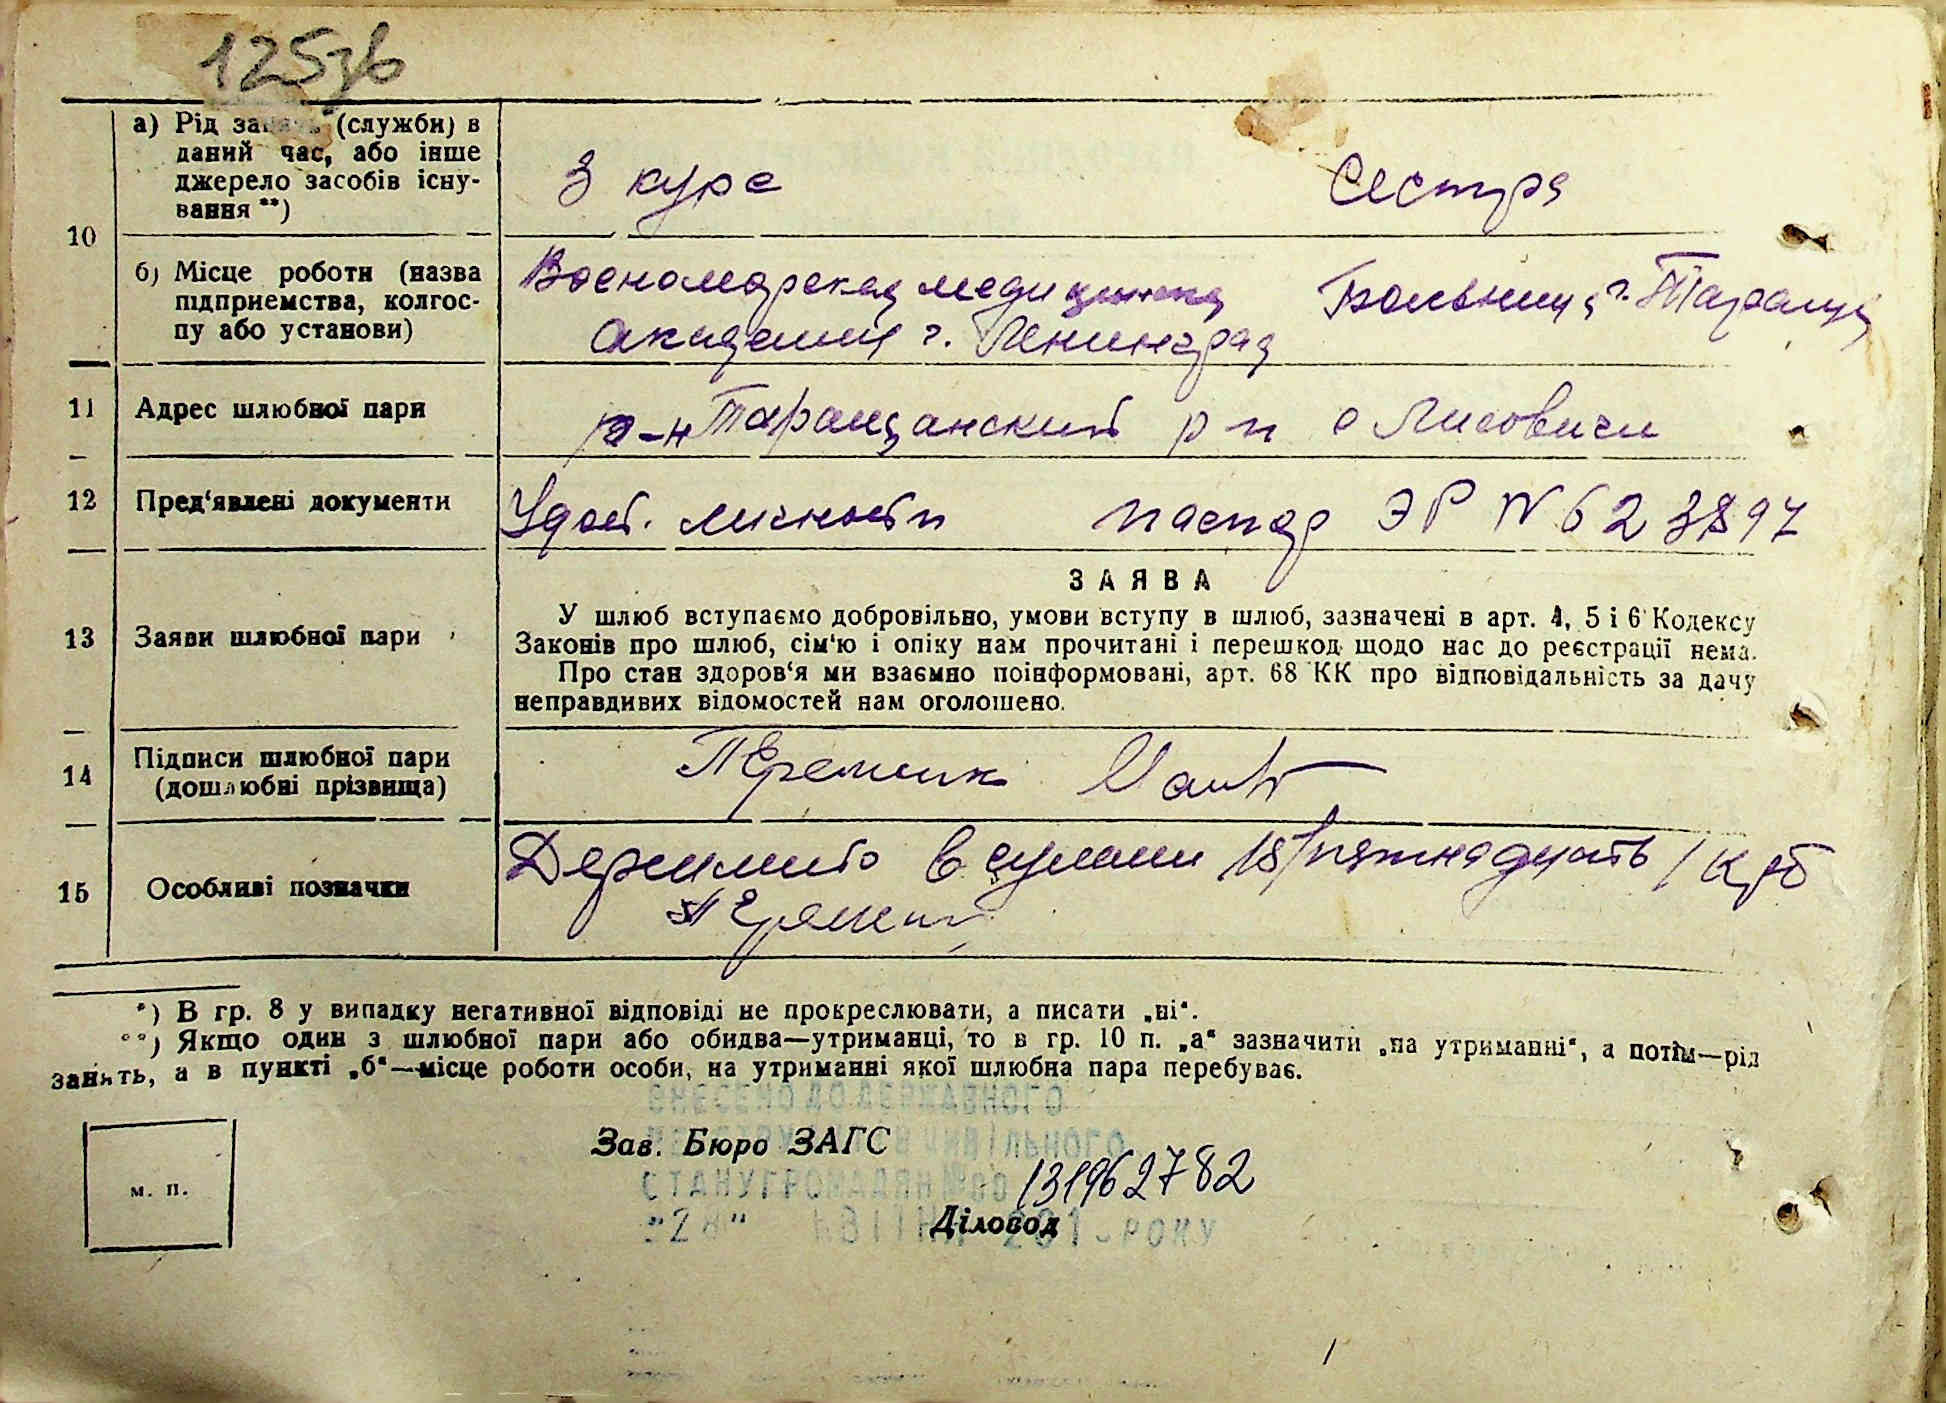 125зв
а) Рід занять (служби) в
даний час, або інше
джерело засобів існу-
вання **)
3 курс
Сестра
10
б) Місце роботи (назва
підприємства, колгос-
пу або установи)
Военоморская медицинска
академия г. Ленинград
Больниця г. Тараща
11
Адрес шлюбної пари
р-н Таращанский р п с Лисовичи
12
Пред‘явлені документи
Удост. личности паспор ЭР № 623897
13
Заяви шлюбної пари
ЗАЯВА
У шлюб вступаємо добровільно, умови вступу в шлюб, зазначені в арт. 4, 5 і 6 Кодексу
Законів про шлюб, сім‘ю і опіку нам прочитані і перешкод щодо нас до реєстрації нема.
Про стан здоров‘я ми взаємно поінформовані, арт. 68 КК про відповідальність за дачу
неправдивих відомостей нам оголошено.
14
Підписи шлюбної пари
(дошлюбні прізвища)
15
Особливі позначки
в сумами 15/пятнадцать/ крб
*) В гр. 8 у випадку негативної відповіді не прокреслювати, а писати „ні“.
**) Якщо один з шлюбної пари або обидва—утриманці, то в гр. 10 п. „а“ зазначити „на утриманні“, а потім—рід
занять, а в пункті „б“—місце роботи особи, на утриманні якої шлюбна пара перебуває.
ВНЕСЕНО ДО ДЕРЖАВНОГО
Зав. Бюро ЗАГС
ЦИВІЛЬНОГО
СТАНУ ГРОМАДЯН № 00 131962782
м. п.
Діловод
"28" КВІТНЯ РОКУ